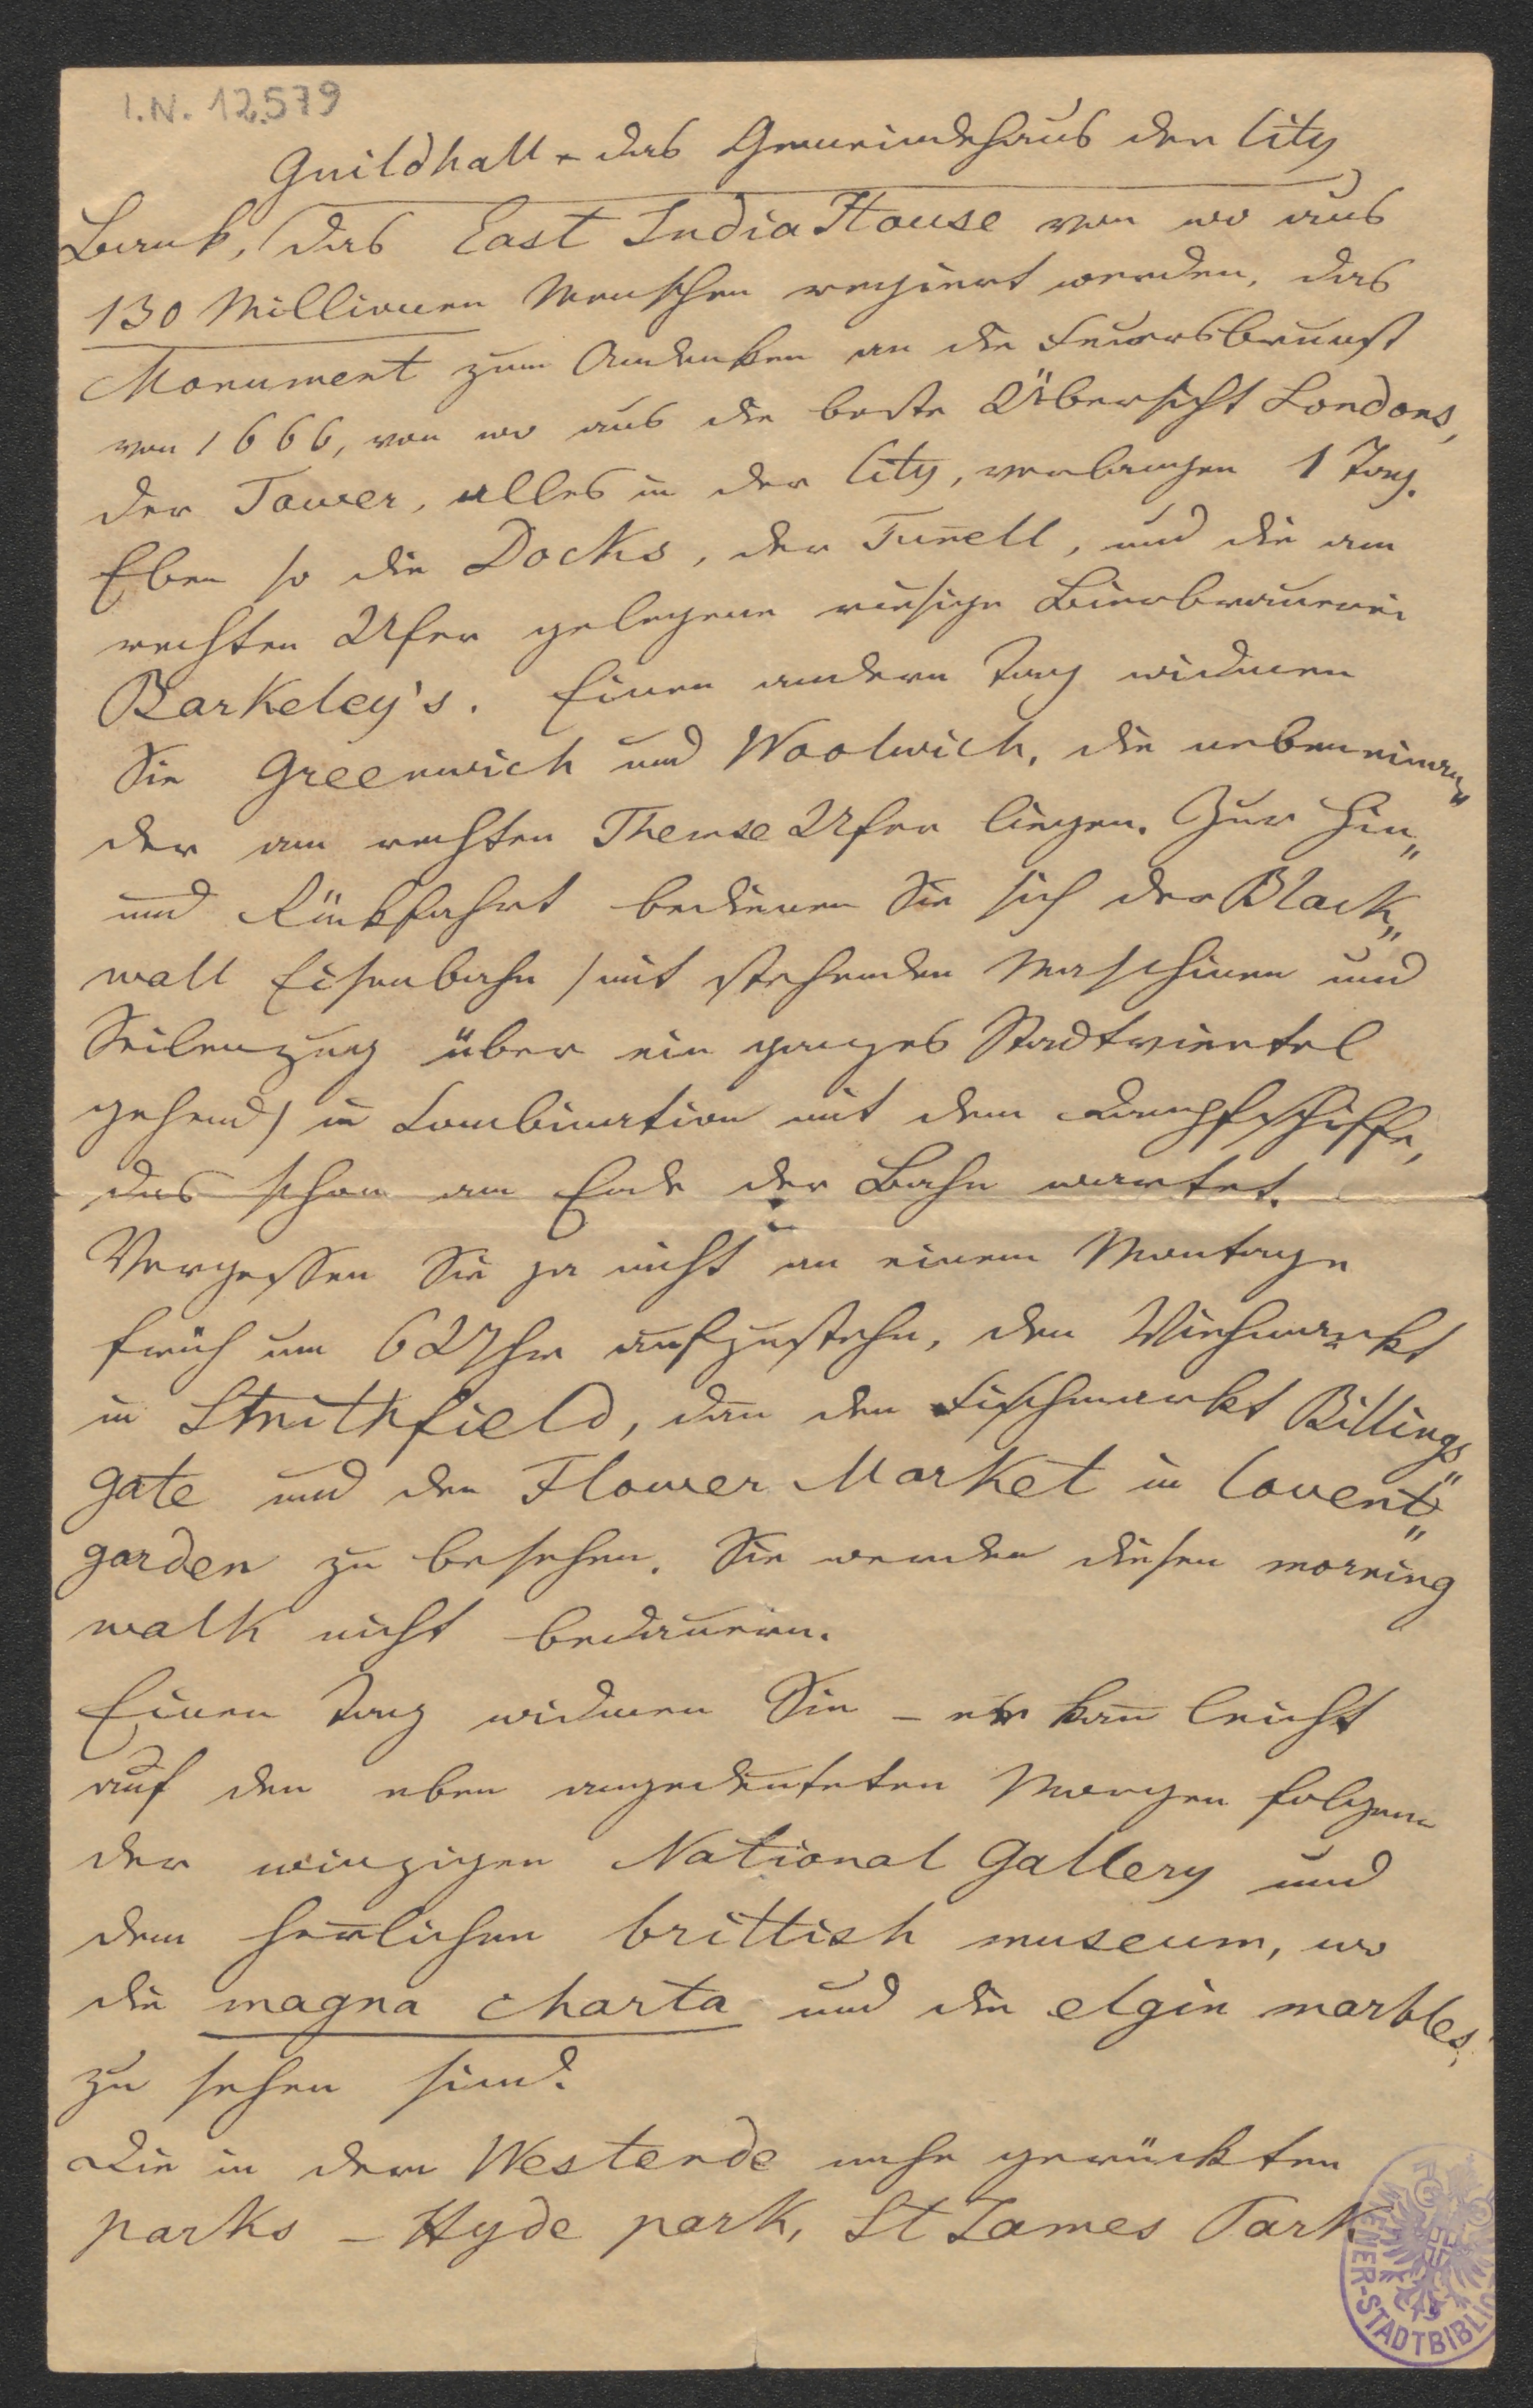 I.N. 12.579
Guildhall - das Gemeindehaus der City
Bank, das East India House von wo aus
130 Millionen Menschen regiert werden, das
Monument zum Andenken an die Feuersbrunst
von 1666, von wo aus die beste Übersicht Londons,
der Tower, alles in der City, verlangen 1 Tag.
Eben so die Docks, der Tun̄ell, und die am
rechten Ufer gelegene riesige Bierbrauerei
Barkeley's. Einen andern Tag widmen
Sie Greenwich und Woolwich, die nebeneinan„
der am rechten Themse Ufer liegen. Zur Hin„
und Rückfahrt bedienen Sie sich der Black„
wall Eisenbahn /mit stehenden Maschinen und
Seilenzug über ein ganzes Stadtviertel
gehend/ in Combination mit dem Dampfschiffe,
das schon am Ende der Bahn wartet.
Vergessen Sie ja nicht an einem Montage
früh um 6 Uhr aufzustehn, den Viehmarkt
in Smithfield, dan̄ den Fischmarkt Billings„
gate und den Flower Market in Covent„
garden zu besehen. Sie werden diesen morning
walk nicht bedauern.
Einen Tag widmen Sie - er kan̄ leicht
auf den eben angedeuteten Morgen folgen -
der winzigen National Gallery und
dem herrlichen brittish museum, wo
die magna charta und die elgin marbles,
zu sehen sind.
Die in dem Westende nahe gerückten
parks - Hyde park, St James Park
WIENER-STADTBIBLIO